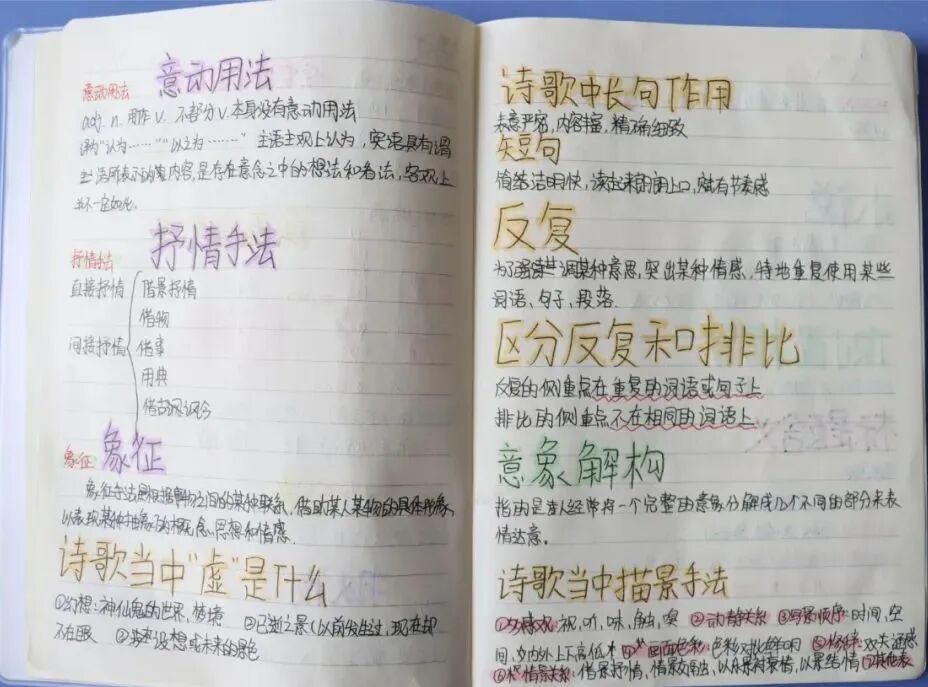 意动用法
意动用法
adj. n. 用作 v. 不部分 v. 本身没有意动用法
译为"认为……""以之为……" 主语主观上认为，宾语具有谓
语所表示的内容，是存在意念之中的想法和看法，客观上
并不一定如此。
抒情手法
抒情手法
直接抒情
借景抒情
借物
间接抒情
借事
用典
借古讽今
象征
象征
象征手法是根据事物之间的某种联系，借助某人某物的具体形象，
以表现某种抽象的概念、思想和情感
诗歌当中"虚"是什么
①幻想：神仙鬼的世界，梦境 ②已逝之景(以前发生过，现在却
不在眼 ③设想或未来的景色
诗歌中长句作用
表意严密，内容丰富，精确细致
短句
简洁明快，读起来朗朗上口，赋有节奏感
反复
为了强调某种意思，突出某种情感，特地重复使用某些
词语、句子、段落.
区分反复和排比
反复的侧重点在重复的词语或句子上
排比的侧重点不在相同的词语上
意象解构
指的是诗人经常将一个完整的意象分解成几个不同的部分来表
情达意。
诗歌当中描景手法
①多感观：视，听，味，触，嗅 ②动静关系 ③写景顺序：时间，空
间，内外上下高低 ④画面色彩：色彩对比鲜明 ⑤修辞：
⑥情景关系：借景抒情，情景交融，以乐景衬哀情，以景结情 ⑦其他表